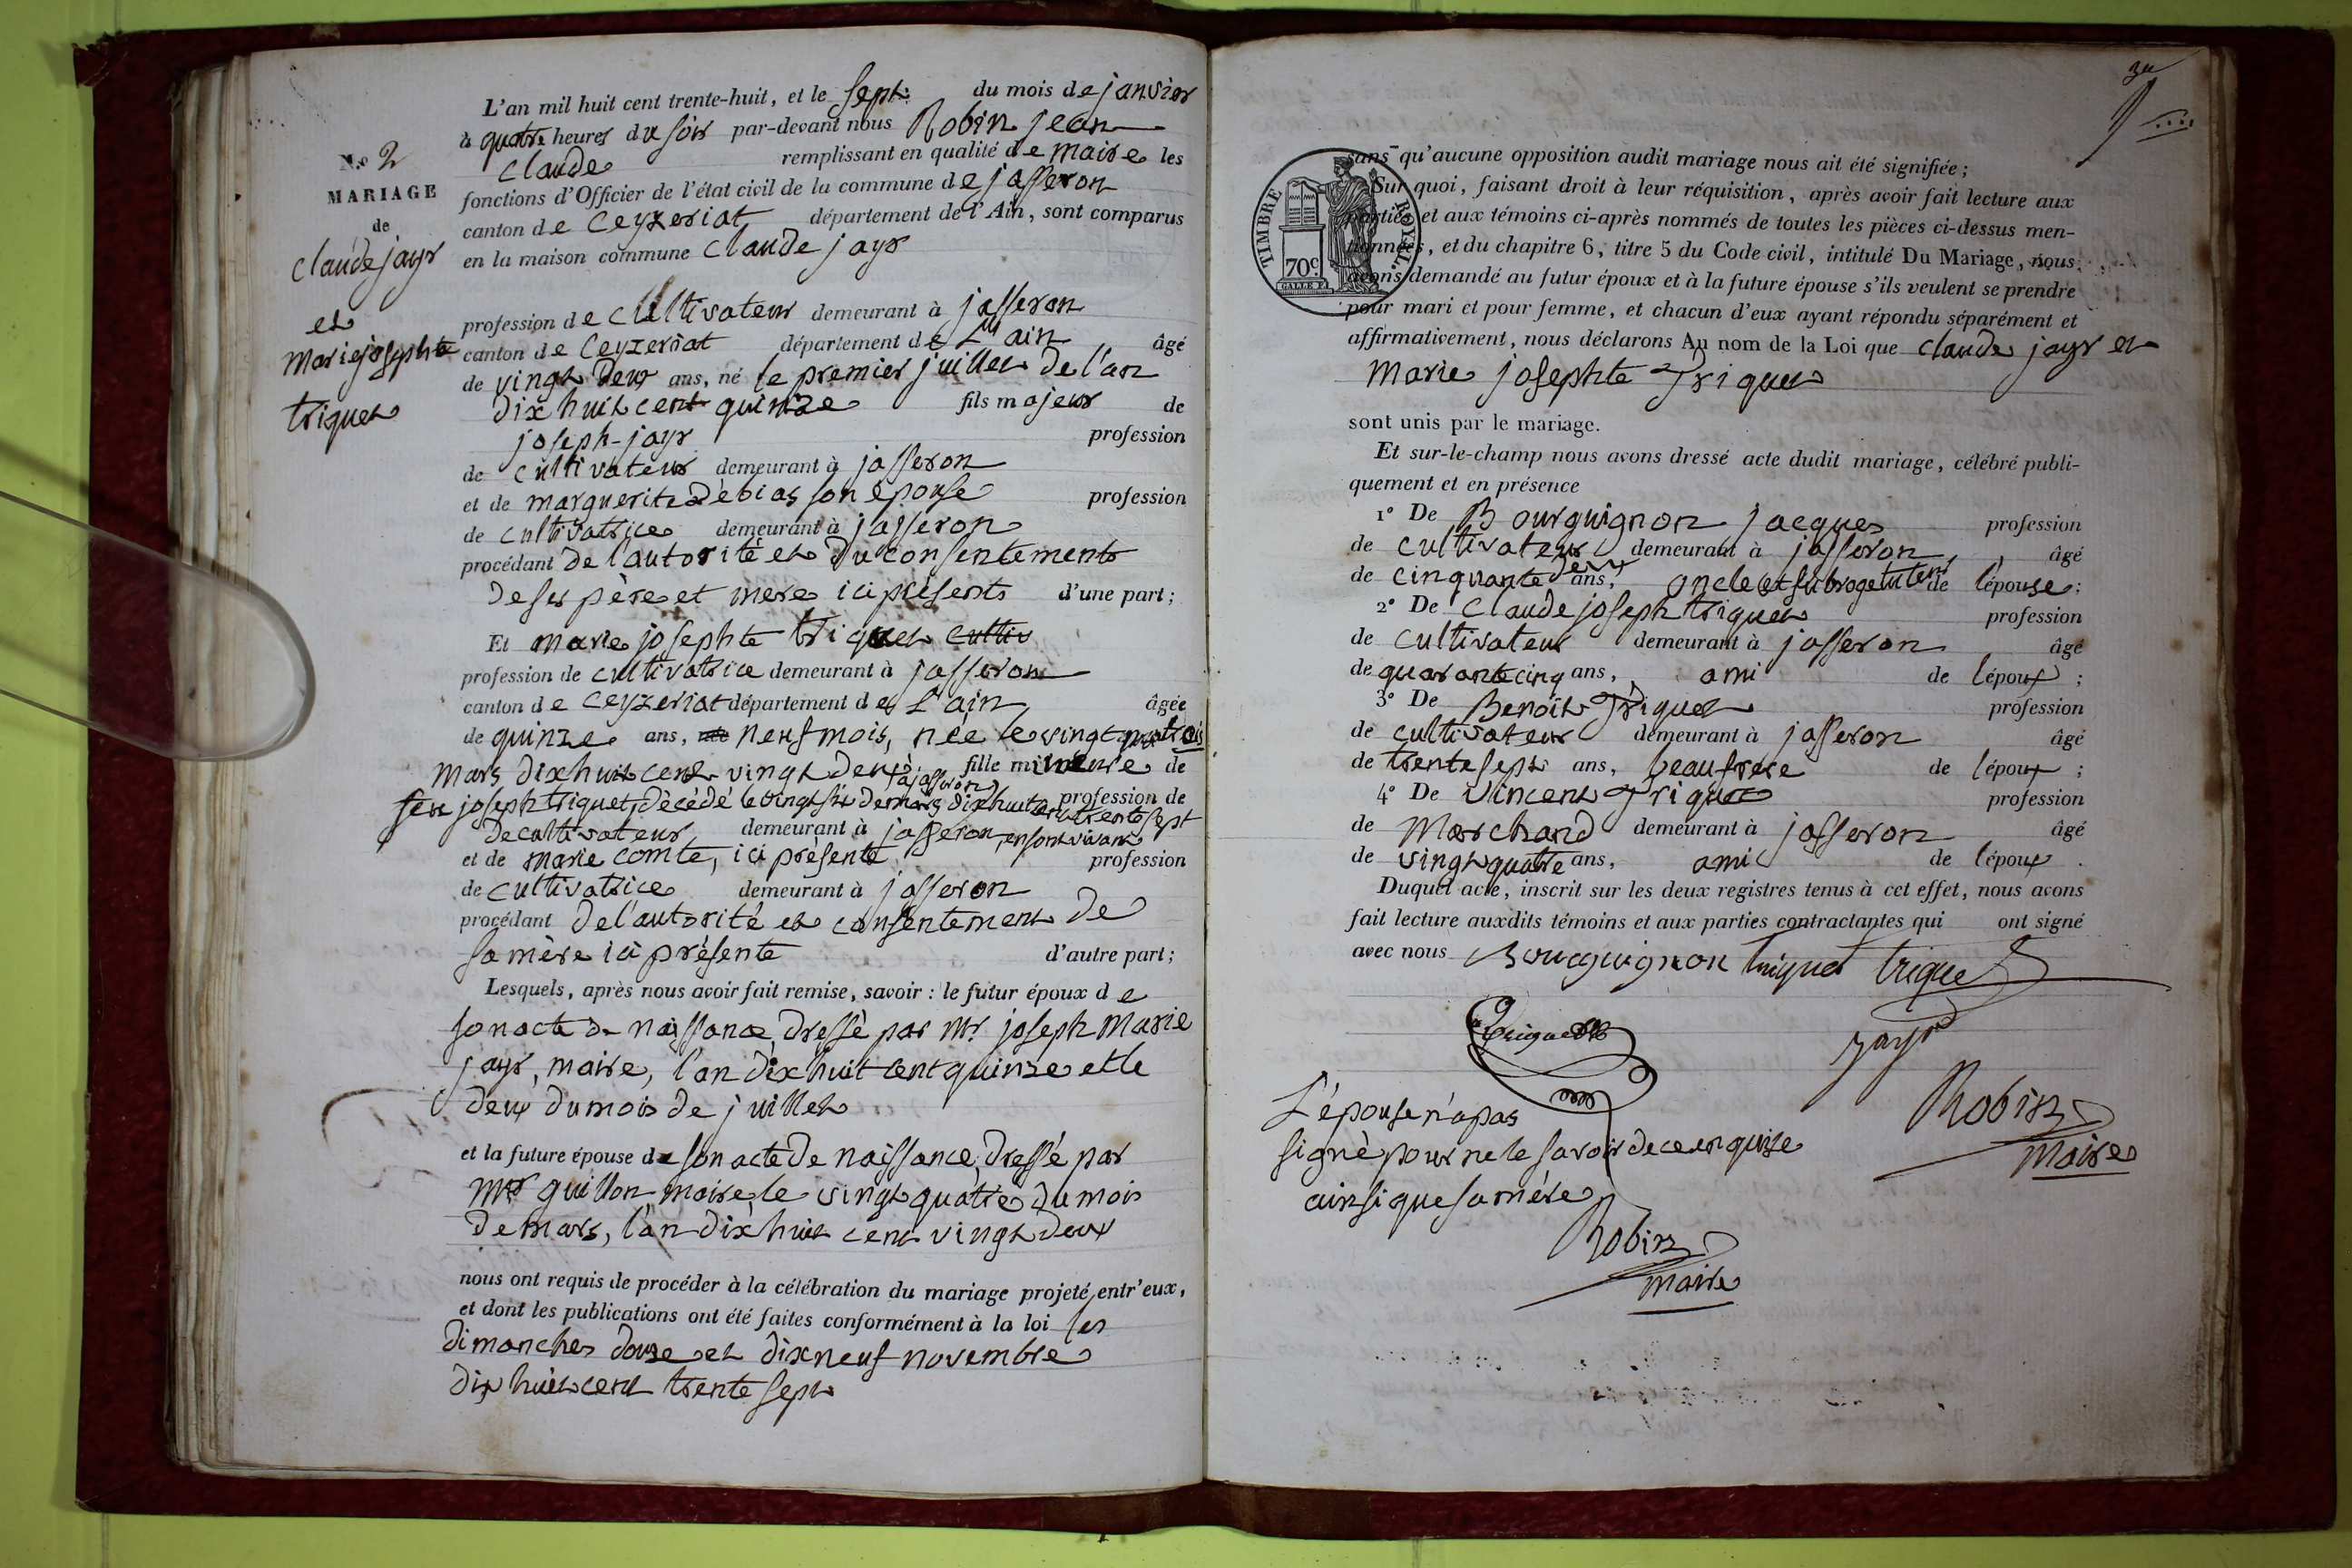 N.o 2
MARIAGE
de
Claude jayr
et
marie josephte
triquet
L'an mil huit cent trente-huit, et le sept du mois de janvier
à quatre heures du soir par-devant nous Robin jean
Claude remplissant en qualité de maire les
fonctions d'Officier de l'état civil de la commune de jasseron
canton de Ceyzeriat département de l'Ain, sont comparus
en la maison commune Claude jayr
profession de Cultivateur demeurant à jasseron
canton de Ceyzeriat département de L'ain âgé
de vingt deux ans, né le premier juillet de l'an
dix huit cent quinze fils majeur de
joseph-jayr profession
de cultivateur demeurant à jasseron
et de marguerite Debias son épouse profession
de cultivatrice demeurant à jasseron
procédant de l'autorité et du consentement
de ses père et mere ici présents d'une part;
Et marie josephte triquet cultiv
profession de cultivatrice demeurant à jasseron
canton de Ceyzeriat département de L'ain âgée
de quinze ans, neuf mois, née le vingt trois
mars dix huit cent vingt deux fille mineure de
à jasseron
feu joseph triquet, décédé le vingt six de mars dix huit cent trente sept profession de
de cultivateur demeurant à jasseron, en son vivant
et de marie comte, ici présente profession
de cultivatrice demeurant à jasseron
procédant de l'autorité et consentement de
sa mère ici présente d'autre part;
Lesquels, après nous avoir fait remise, savoir : le futur époux de
son acte de naissance dressé par Mr. joseph Marie
jayr, maire, l'an dix huit cent quinze et le
deux du mois de juillet
et la future épouse de son acte de naissance, dressé par
Mr guillon maire le vingt quatre du mois
de mars, l'an dix huit cent vingt deux
nous ont requis de procéder à la célébration du mariage projeté entr'eux,
et dont les publications ont été faites conformément à la loi les
dimanches douze et dix neuf novembre
dix huit cent trente sept
TIMBRE ROYAL
70c
sans qu'aucune opposition audit mariage nous ait été signifiée;
Sur quoi, faisant droit à leur réquisition, après avoir fait lecture aux
parties et aux témoins ci-après nommés de toutes les pièces ci-dessus men-
tionnées, et du chapitre 6, titre 5 du Code civil, intitulé Du Mariage, nous
avons demandé au futur époux et à la future épouse s'ils veulent se prendre
pour mari et pour femme, et chacun d'eux ayant répondu séparément et
affirmativement, nous déclarons Au nom de la Loi que Claude jayr et
Marie josephte Triquet
sont unis par le mariage.
Et sur-le-champ nous avons dressé acte dudit mariage, célébré publi-
quement et en présence
1° De Bourguignon jacques profession
de Cultivateur demeurant à jasseron, âgé
de cinquante deux ans, oncle et subrogé tuteur de l'épouse;
2° De Claude joseph triquet profession
de cultivateur demeurant à jasseron âgé
de quarante cinq ans, ami de l'époux;
3° De Benoit Triquet profession
de cultivateur demeurant à jasseron âgé
de trente sept ans, beaufrere de l'époux;
4° De Vincent Triquet profession
de Marchand demeurant à jasseron âgé
de vingt quatre ans, ami de l'époux.
Duquel acte, inscrit sur les deux registres tenus à cet effet, nous avons
fait lecture auxdits témoins et aux parties contractantes qui ont signé
avec nous Bourguignon triquet trique
Triquet
jayr
Robin
maire
L'épouse n'a pas
signé pour ne le savoir de ce enquise
ainsi que sa mére
Robin
maire